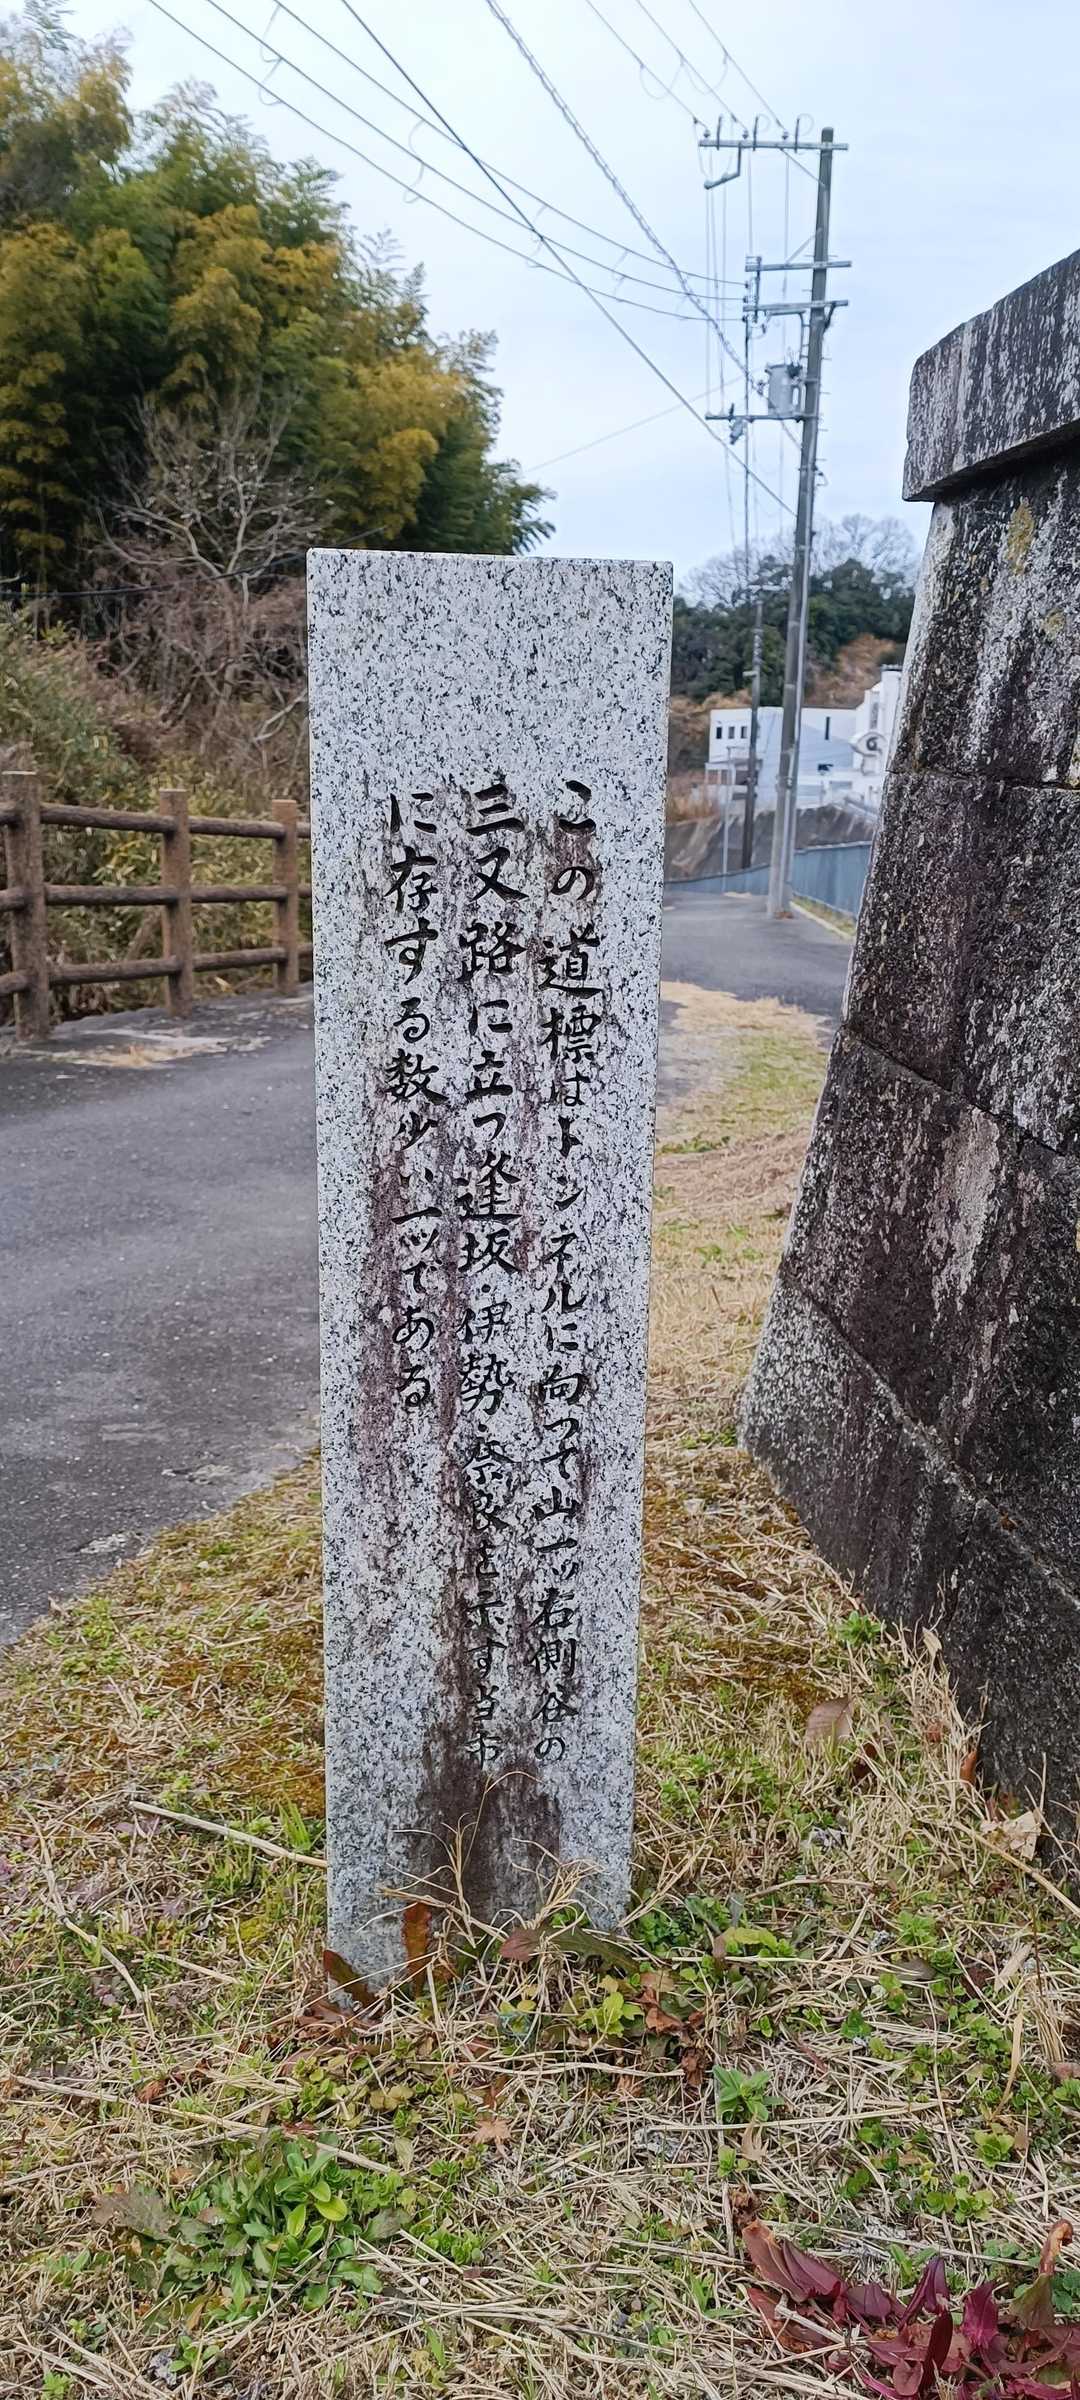 この道標はトンネルに向って山一ッ右側谷の
三又路に立つ逢坂・伊勢・奈良を示す当市
に存する数少い一ッである